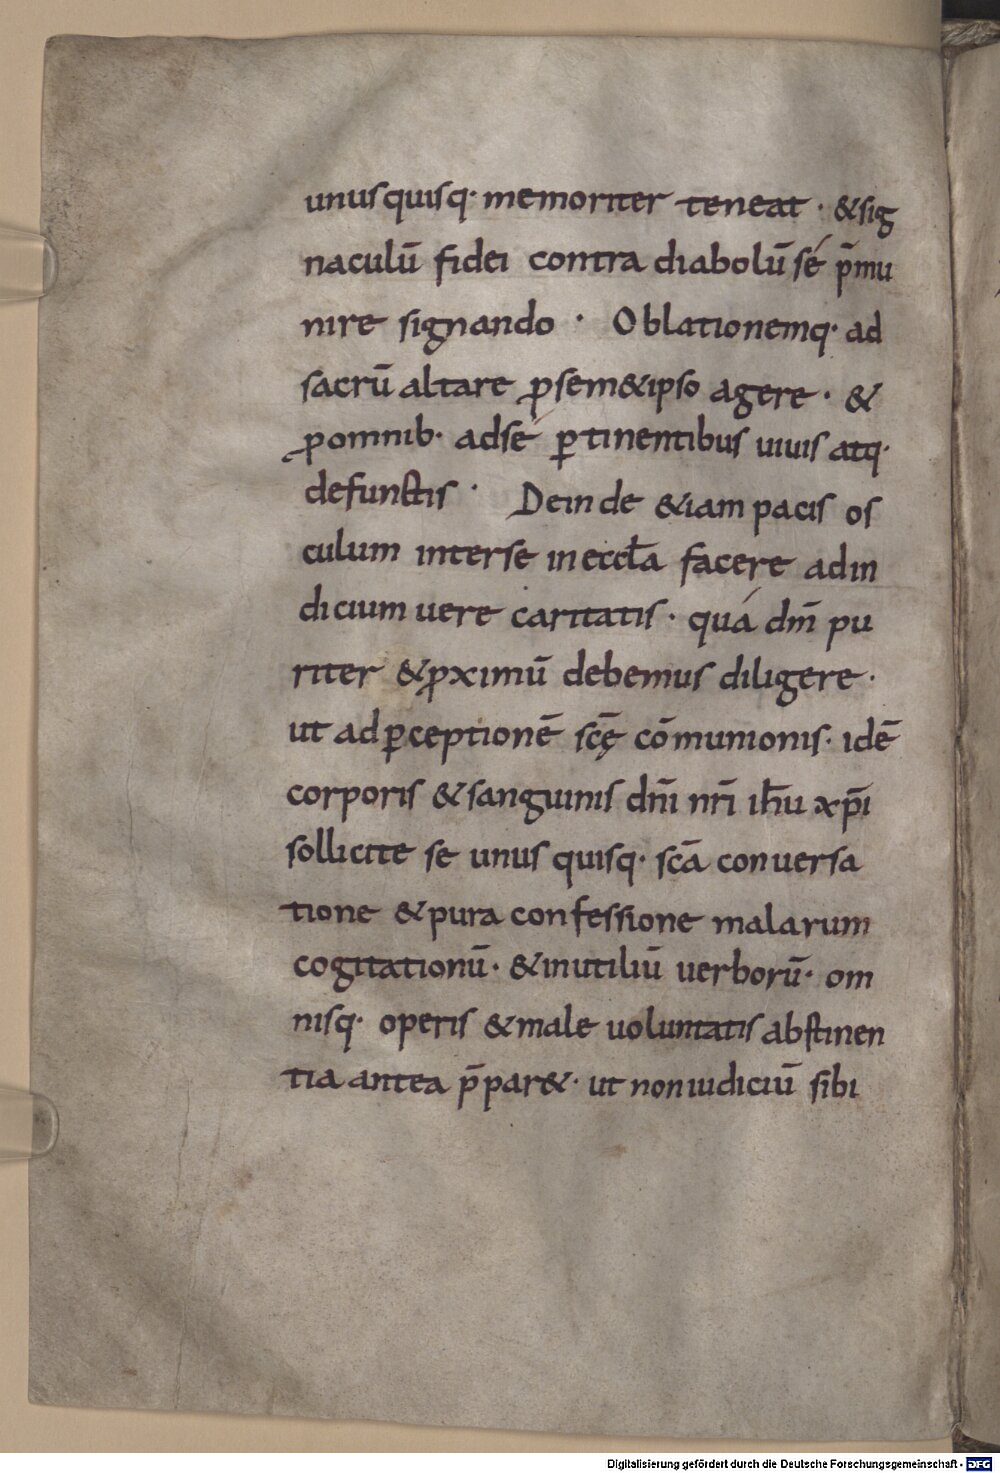 unusquisq· memoriter teneat · &sig
naculū fidei contra diabolū sé p̄mu
nire signando · Oblationemq· ad
sacrū altare ꝓ sem&ipso agere · &
ꝓ omnib· ad sé ꝑtinentibus uiuis atq·
defunctis · Deinde &iam pacis os
culum inter se in eccl̄a facere ad in
dicium uere caritatis · quá dm̄ pu
riter & ꝓximū debemus diligere ·
ut ad ꝑceptionē scę̄ cōmunionis· idē
corporis & sanguinis dn̄i nr̄i ih̄u xp̄i
sollicite se unus quisq· scā conuersa
tione & pura confessione malarum
cogitationū· & inutiliū uerborū· om
nisq· operis & male uoluntatis abstinen
tia antea p̄par&· ut non iudiciū sibi
Digitalisierung gefördert durch die Deutsche Forschungsgemeinschaft - DFG